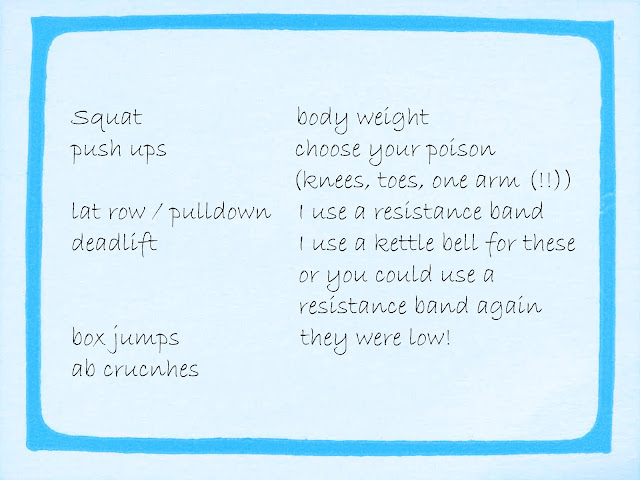 Squat body weight
push ups choose your poison
(knees, toes, one arm (!!))
lat row / pulldown I use a resistance band
deadlift I use a kettle bell for these
or you could use a
resistance band again
box jumps they were low!
ab crucnhes